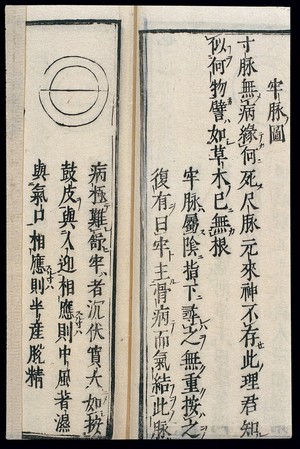 牢脉圖
寸脉無病緣何死尺脉元來神不存此理君知
似何物譬如草木已無根
牢脉屬陰指下尋之無重按之
復有曰牢主骨病而氣結此脉
病極難餘牢者沉伏實大如按
鼓皮與人迎相應則中風著濕
與氣口相應則半産脫精